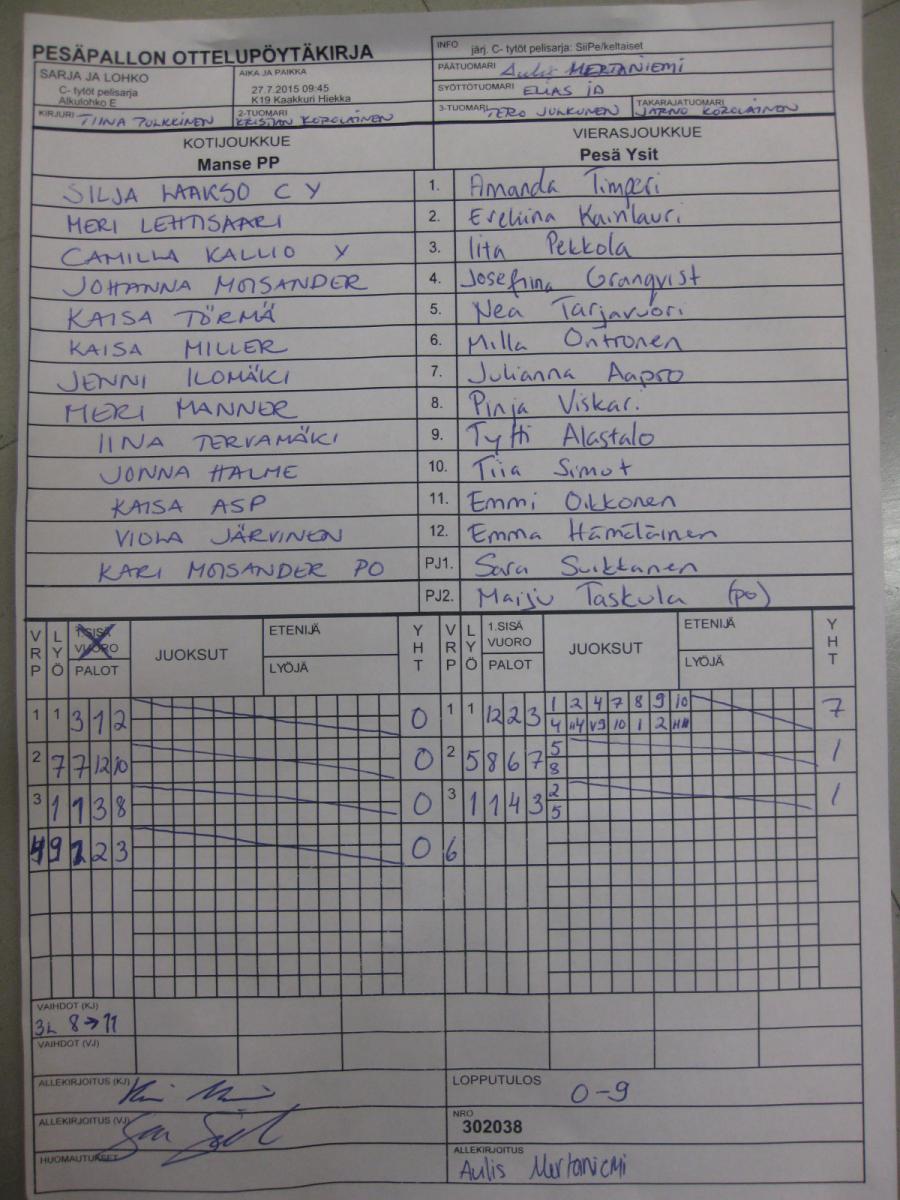 PESÄPALLON OTTELUPÖYTÄKIRJA
INFO järj. C- tytöt pelisarja: SiiPe/keltaiset
SARJA JA LOHKO
C- tytöt pelisarja
Alkulohko E
AIKA JA PAIKKA
27.7.2015 09:45
K19 Kaakkuri Hiekka
PÄÄTUOMARI Aulis MERTANIEMI
SYÖTTÖTUOMARI ELIAS
KIRJURI TIINA PULKKINEN
2-TUOMARI KRISTIAN KOROLAINEN
3-TUOMARI TERO JUNKUNEN
TAKARAJATUOMARI JARNO KOROLAINEN
KOTIJOUKKUE
Manse PP
VIERASJOUKKUE
Pesä Ysit
SILJA LAAKSO C Y 1. Amanda Timperi
MERI LEHTISAARI 2. Eveliina Kainlauri
CAMILLA KALLIO Y 3. Iita Pekkola
JOHANNA MOISANDER 4. Josefina Granqvist
KAISA TÖRMÄ 5. Nea Tarjavuori
KAISA MILLER 6. Milla Ontronen
JENNI ILOMÄKI 7. Julianna Aapro
MERI MANNER 8. Pinja Viskari
IINA TERVAMÄKI 9. Tytti Alastalo
JONNA HALME 10. Tiia Simot
KAISA ASP 11. Emmi Oikkonen
VIOLA JÄRVINEN 12. Emma Hämäläinen
KARI MOISANDER PO PJ1. Sara Suikkanen
PJ2. Maiju Taskula (po)
VRP LYÖ 1.SISÄ VUORO PALOT JUOKSUT ETENIJÄ LYÖJÄ YHT VRP LYÖ 1.SISÄ VUORO PALOT JUOKSUT ETENIJÄ LYÖJÄ YHT
1 1 3 1 2 0 1 1 12 2 3 1 2 4 7 8 9 10 7
4 H4 V9 10 1 2
2 7 7 12 10 0 2 5 8 6 7 5 1
8
3 1 1 3 8 0 3 1 1 4 3 2 1
5
4 9 1 2 3 0 6
VAIHDOT (KJ)
3L 8→11
VAIHDOT (VJ)
ALLEKIRJOITUS (KJ)
LOPPUTULOS 0-9
ALLEKIRJOITUS (VJ)
NRO
302038
HUOMAUTUKSET
ALLEKIRJOITUS
Aulis Mertaniemi